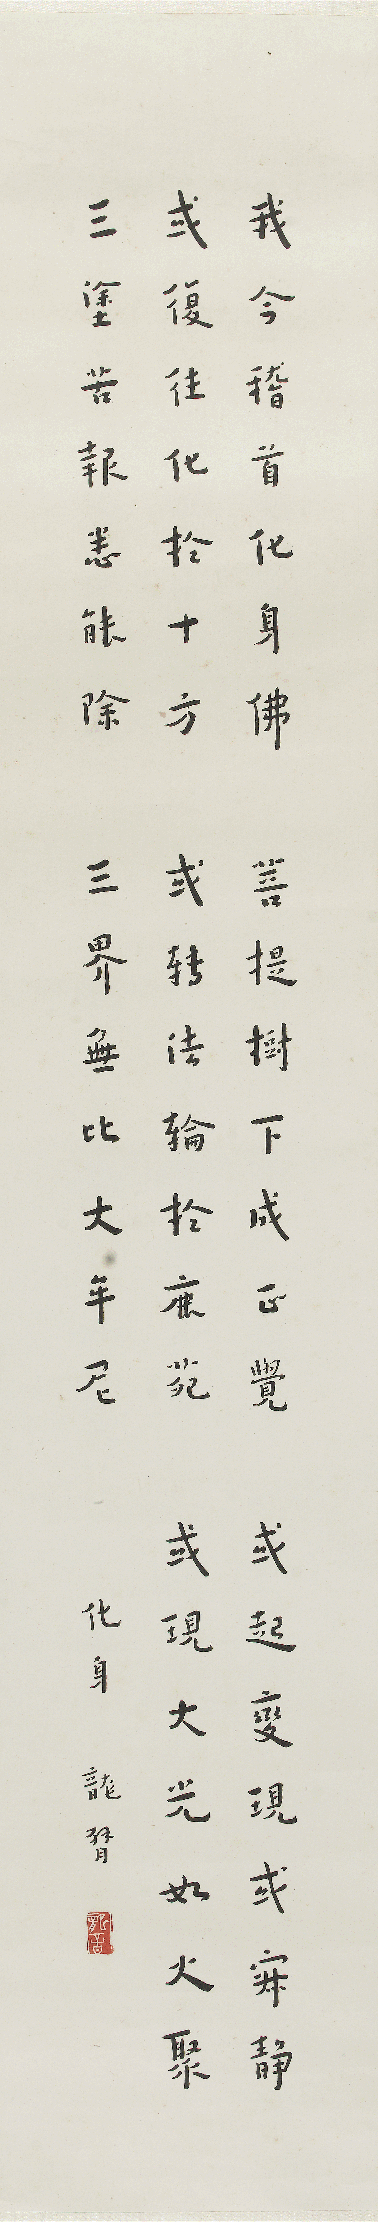 我今稽首化身佛　菩提樹下成正覺　或起變現或寂静
或復往化於十方　或轉法輪於鹿苑　或現大光如火聚
三塗苦報悉能除　三界無比大牟尼　化身　龍臂